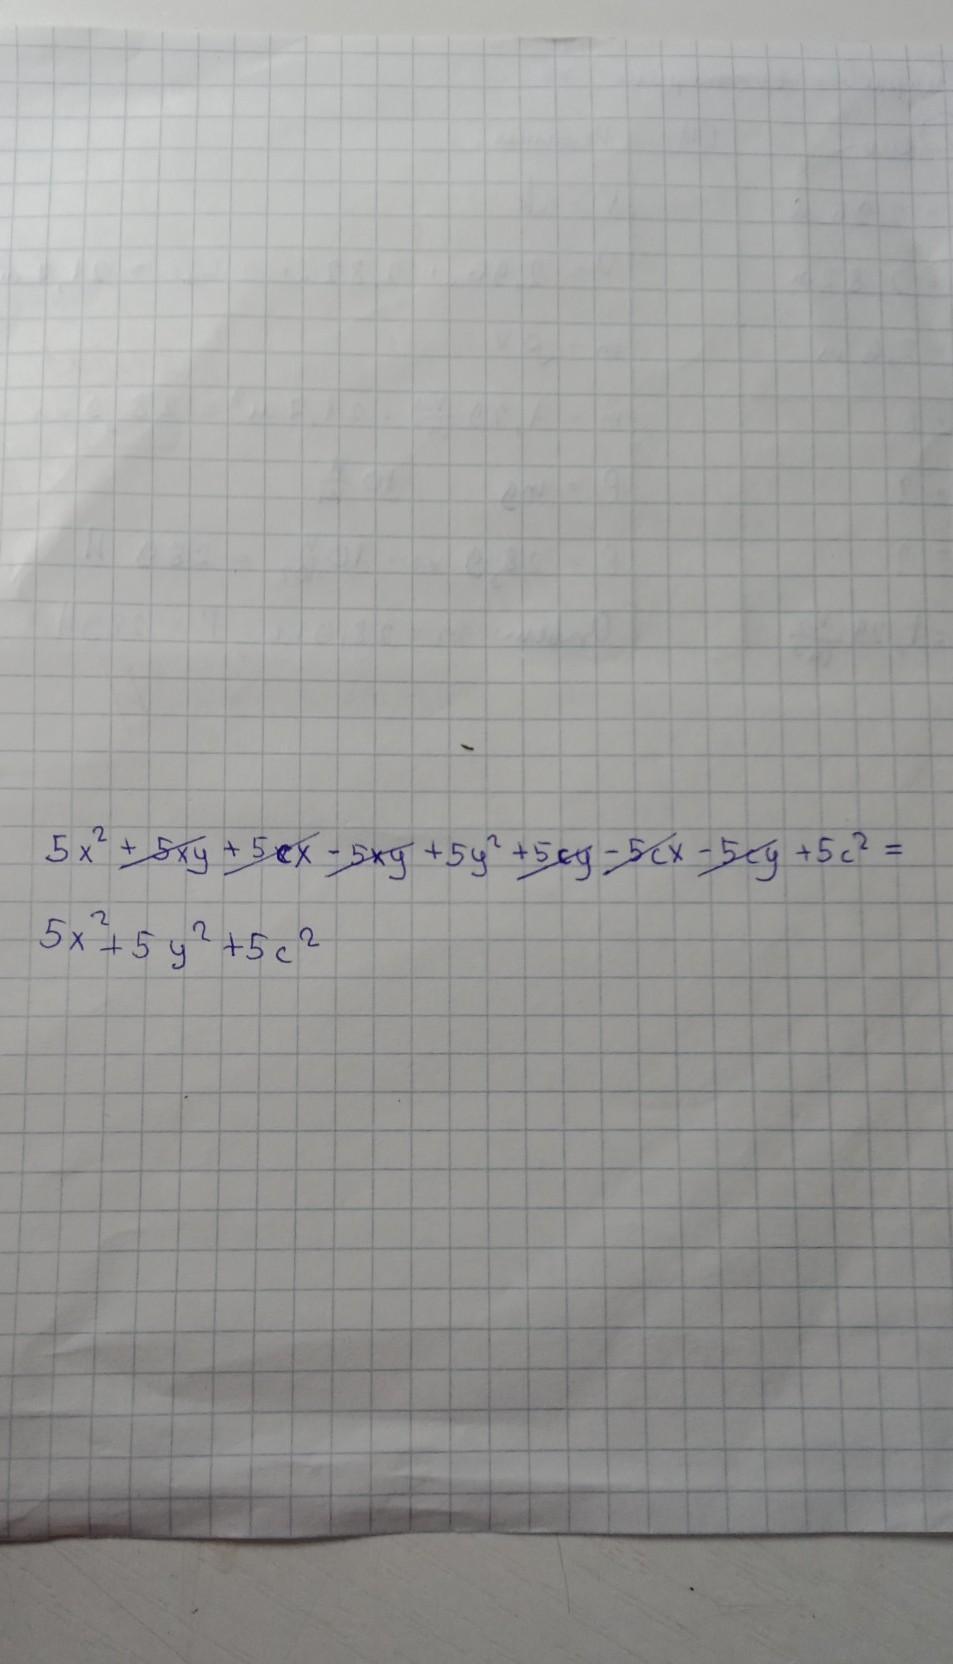 5x² + 5xy + 5cx - 5xy + 5y² + 5cy - 5cx - 5cy + 5c² =
5x² + 5y² + 5c²